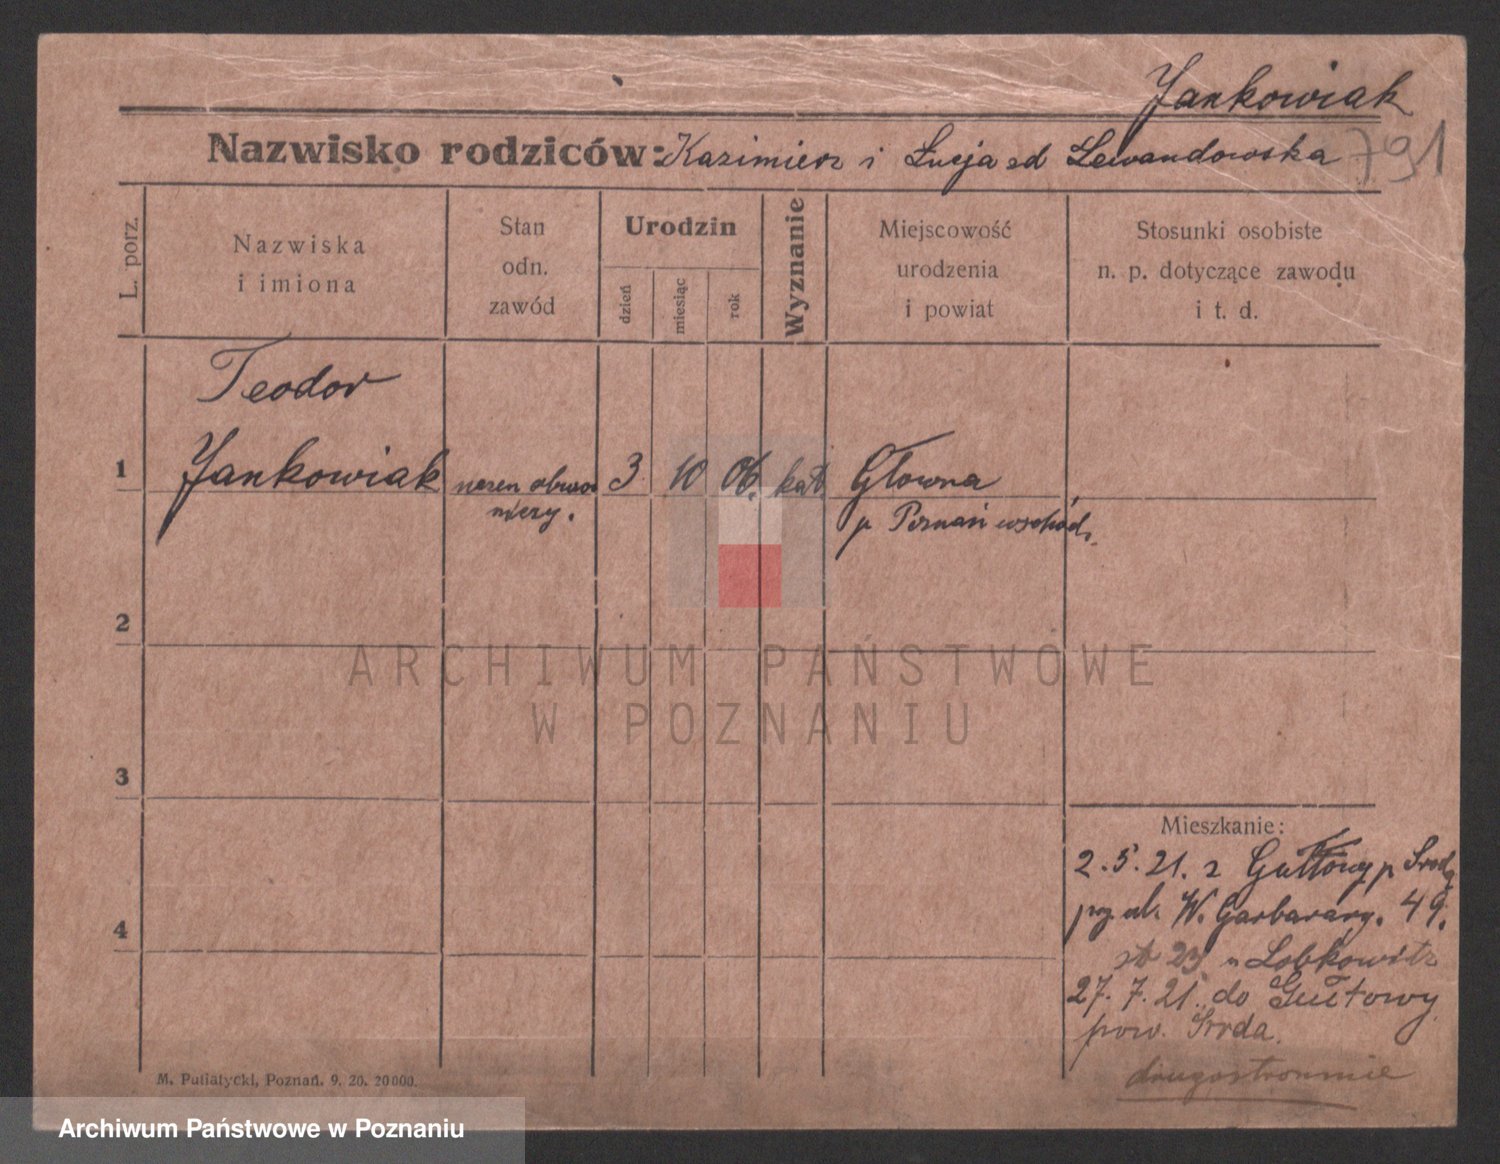 Jankowiak
Nazwisko rodziców: Kazimierz i Łucja zd Lewandowska
791
L. porz.
Nazwiska
i imiona
Stan
odn.
zawód
Urodzin
dzień
miesiąc
rok
Wyznanie
Miejscowość
urodzenia
i powiat
Stosunki osobiste
n. p. dotyczące zawodu
i t. d.
Teodor
1 Jankowiak 3 10 06. kat Głowna
p Poznań wschód.
2
ARCHIWUM PAŃSTWOWE
W POZNANIU
3
Mieszkanie:
2. 5. 21. z Gułtowy p Środa
W. Garbarary. 49.
23 u Lobkowitz
4
27. 7. 21. do Gułtowy
pow. Środa.
drugostronnie
M. Putiatycki, Poznań. 9. 20. 20000.
Archiwum Państwowe w Poznaniu